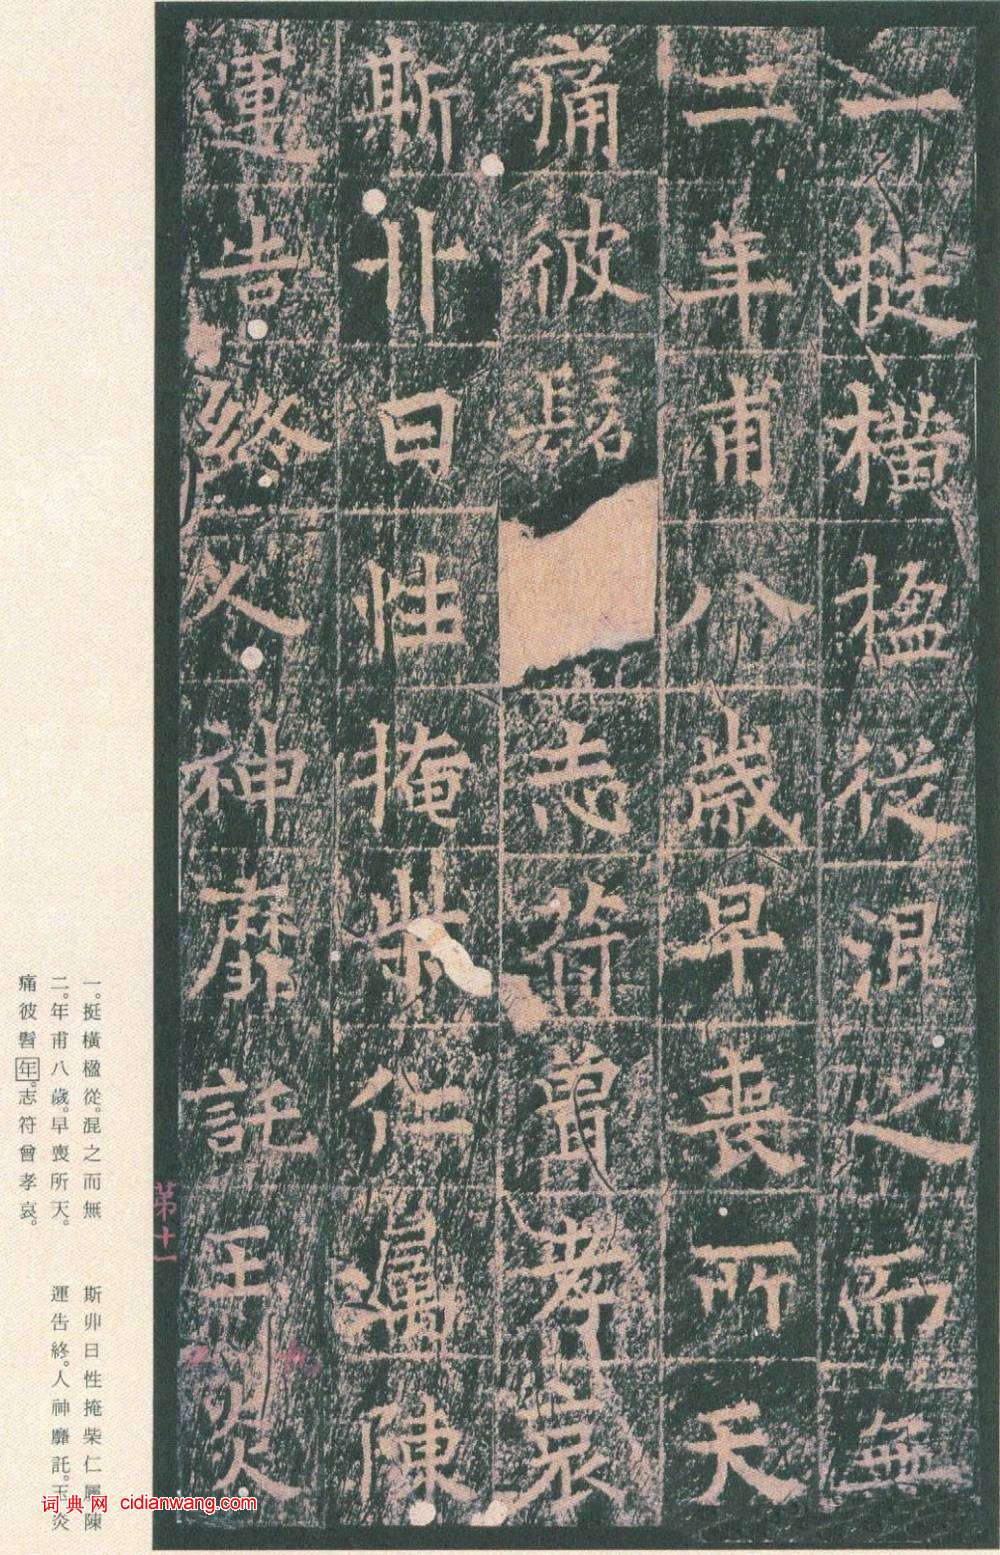 一挺橫楹從混之而無
二年甫八歲早喪所天
痛彼髫志符曾孝哀
斯丱日性掩柴仁陳
運告終人神靡託王炎
第十一
一。挺橫楹從。混之而無
二。年甫八歲。早喪所天。
痛彼髫年。志符曾孝哀。
斯卯日性掩柴仁陳
運告終。人神靡託。王炎
词典网 cidianwang.com